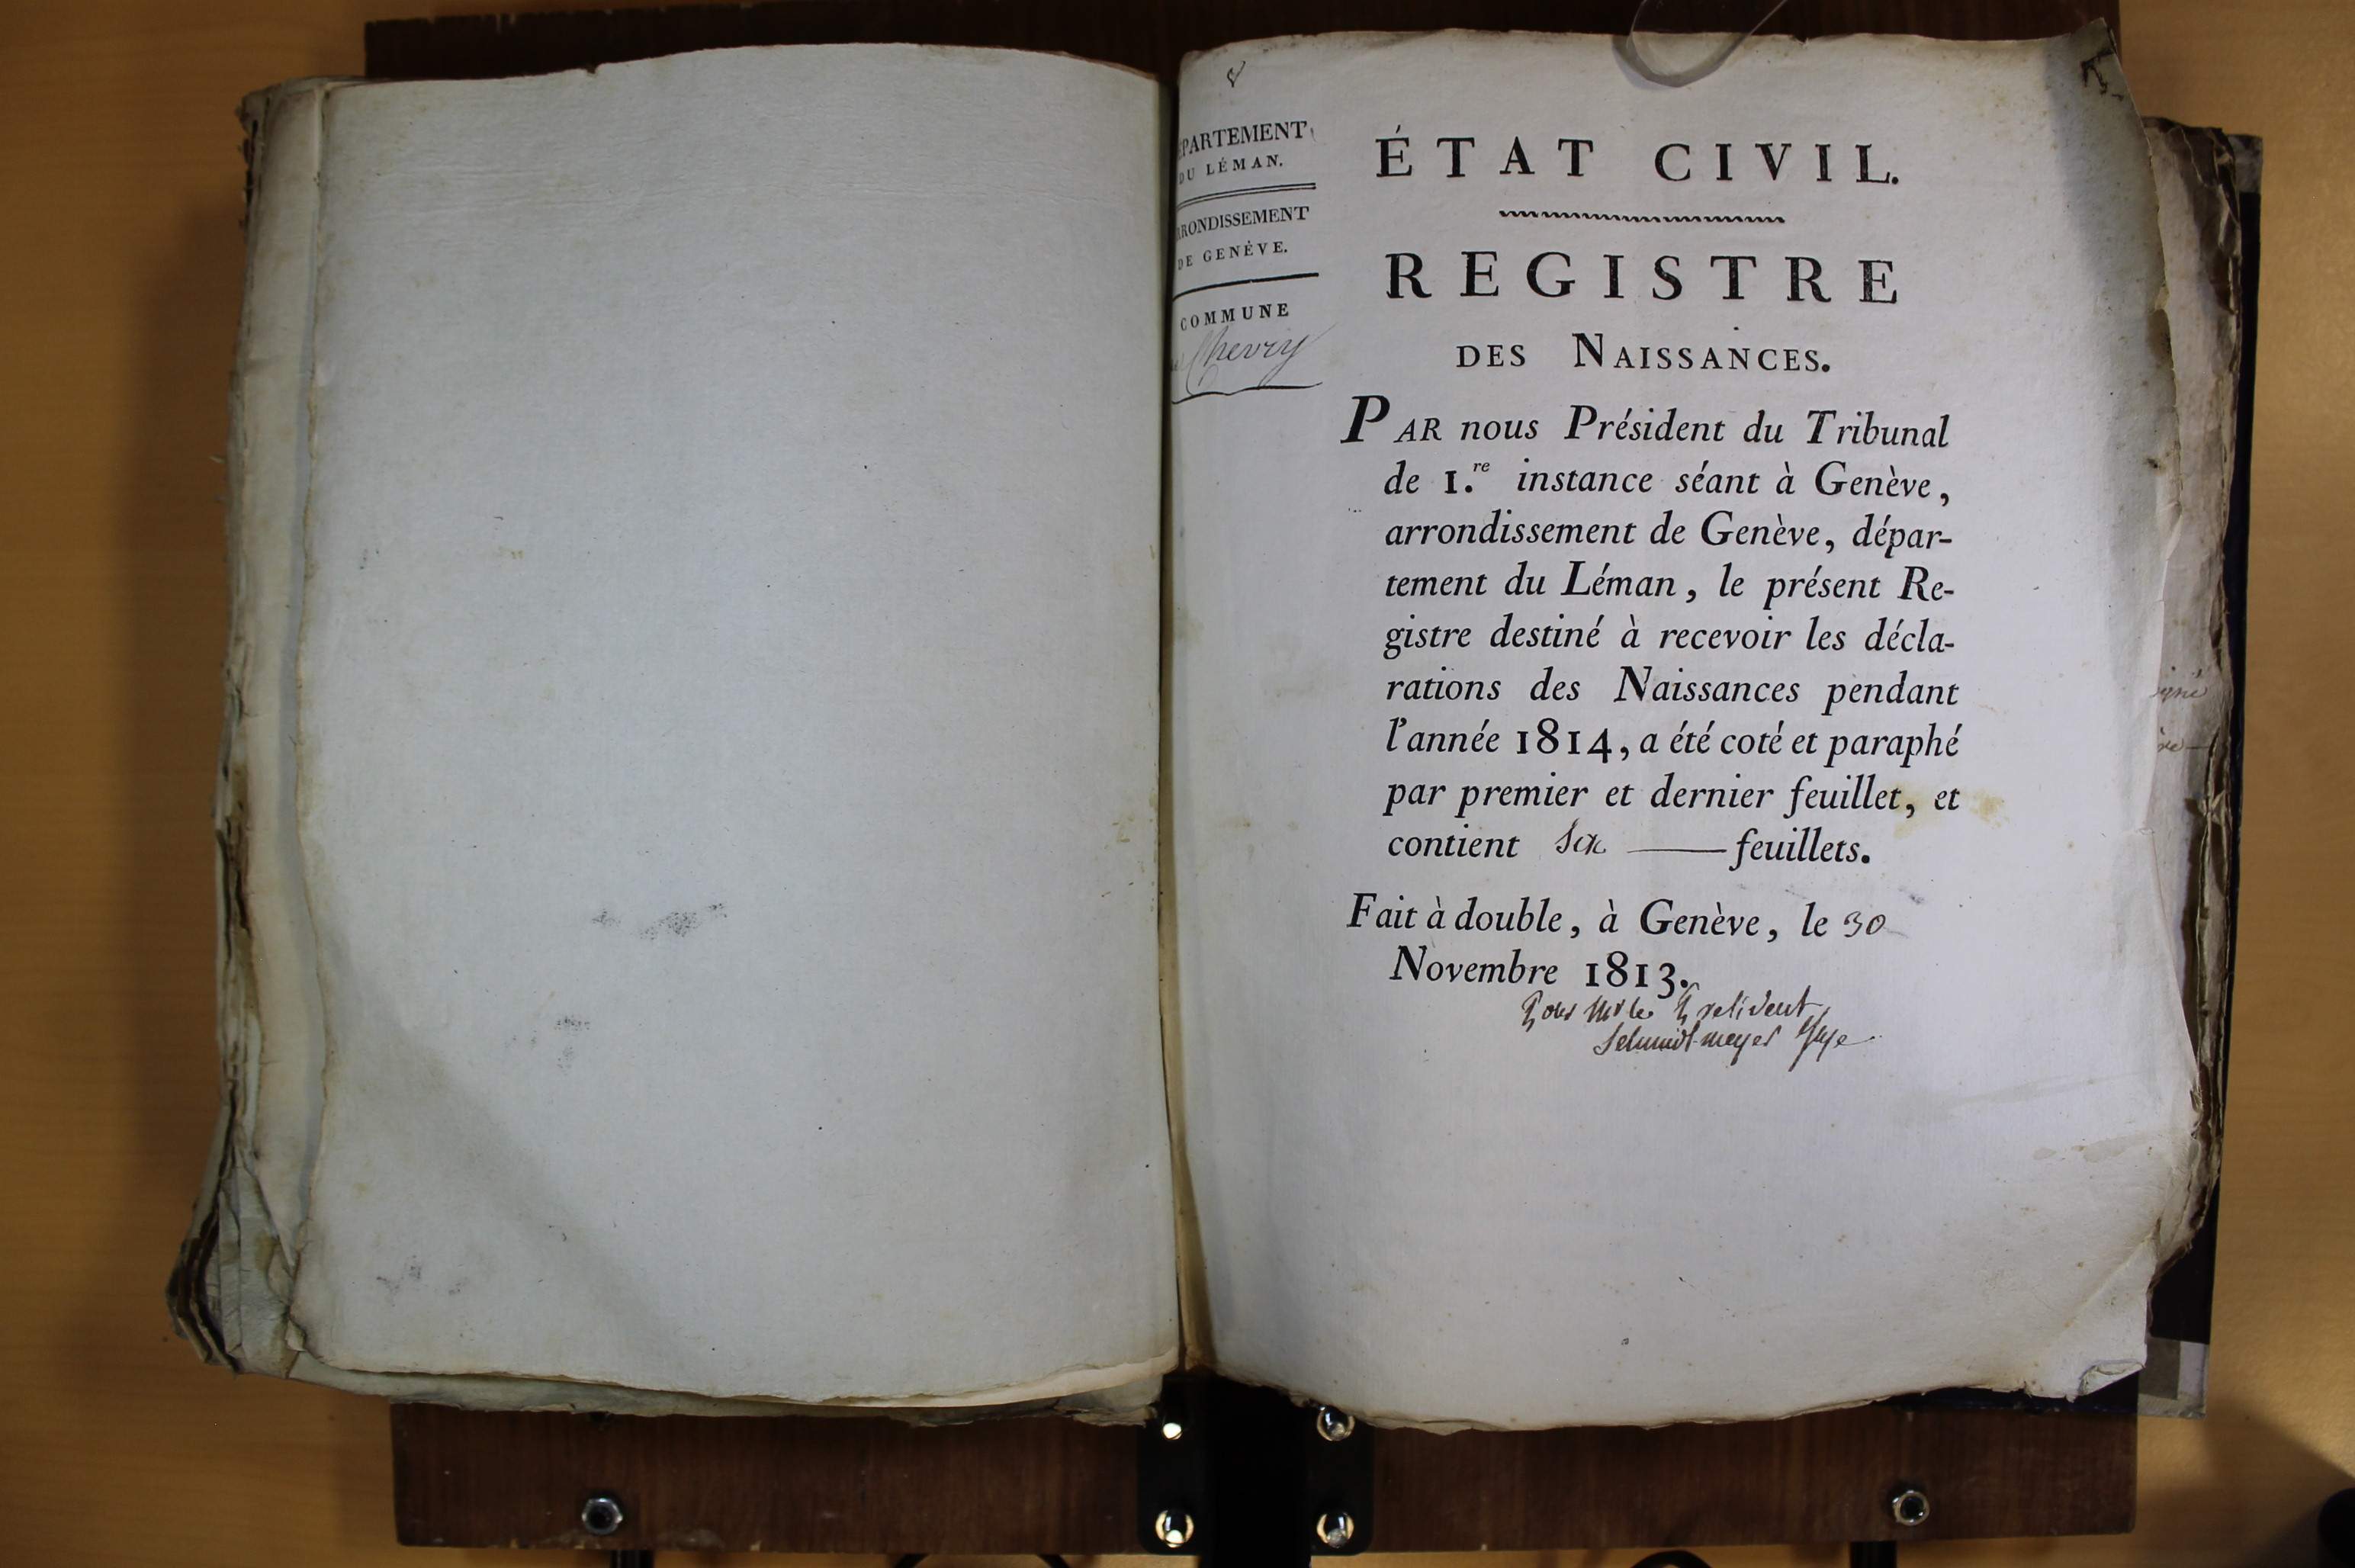 8
ÉPARTEMENT
DU LÉMAN.
RRONDISSEMENT
DE GENÈVE.
COMMUNE
Chevry
ÉTAT CIVIL.
REGISTRE
DES NAISSANCES.
PAR nous Président du Tribunal
de 1.re instance séant à Genève,
arrondissement de Genève, dépar-
tement du Léman, le présent Re-
gistre destiné à recevoir les décla-
rations des Naissances pendant
l'année 1814, a été coté et paraphé
par premier et dernier feuillet, et
contient six feuillets.
Fait à double, à Genève, le 30
Novembre 1813.
Pour Mr le President
Schmidtmeyer Juge